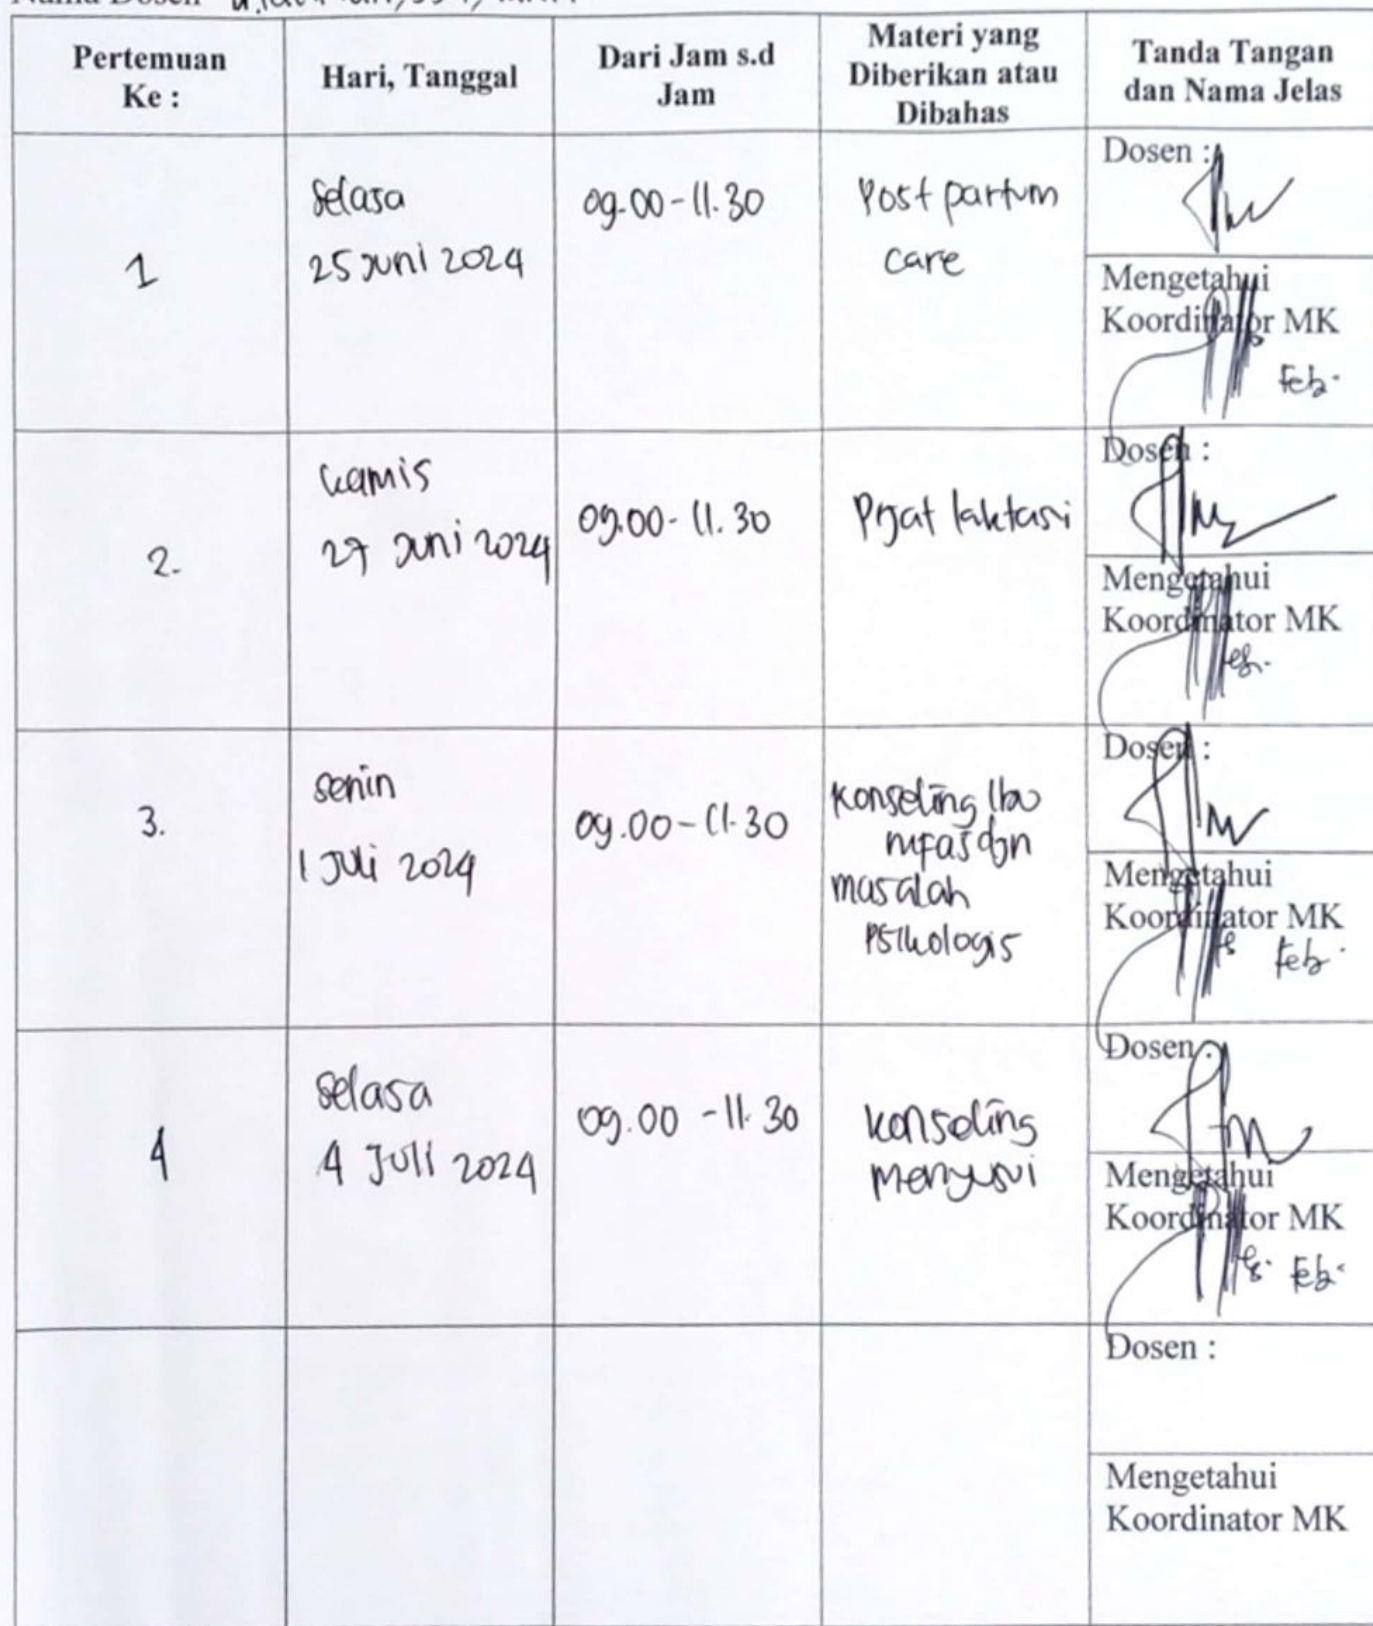 Pertemuan
Ke :
Hari, Tanggal
Dari Jam s.d
Jam
Materi yang
Diberikan atau
Dibahas
Tanda Tangan
dan Nama Jelas
1
Selasa
25 Juni 2024
09.00-11.30
Post partum
care
Dosen :
Mengetahui
Koordinator MK
Feb.
2.
Kamis
27 Juni 2024
09.00-11.30
Pijat laktasi
Dosen :
Mengetahui
Koordinator MK
3.
Senin
1 Juli 2024
09.00-11.30
Konseling Ibu
nifas dgn
masalah
Psikologis
Dosen :
Mengetahui
Koordinator MK
Feb.
4
Selasa
4 Juli 2024
09.00 - 11.30
Konseling
menyusui
Dosen :
Mengetahui
Koordinator MK
Feb.
Dosen :
Mengetahui
Koordinator MK